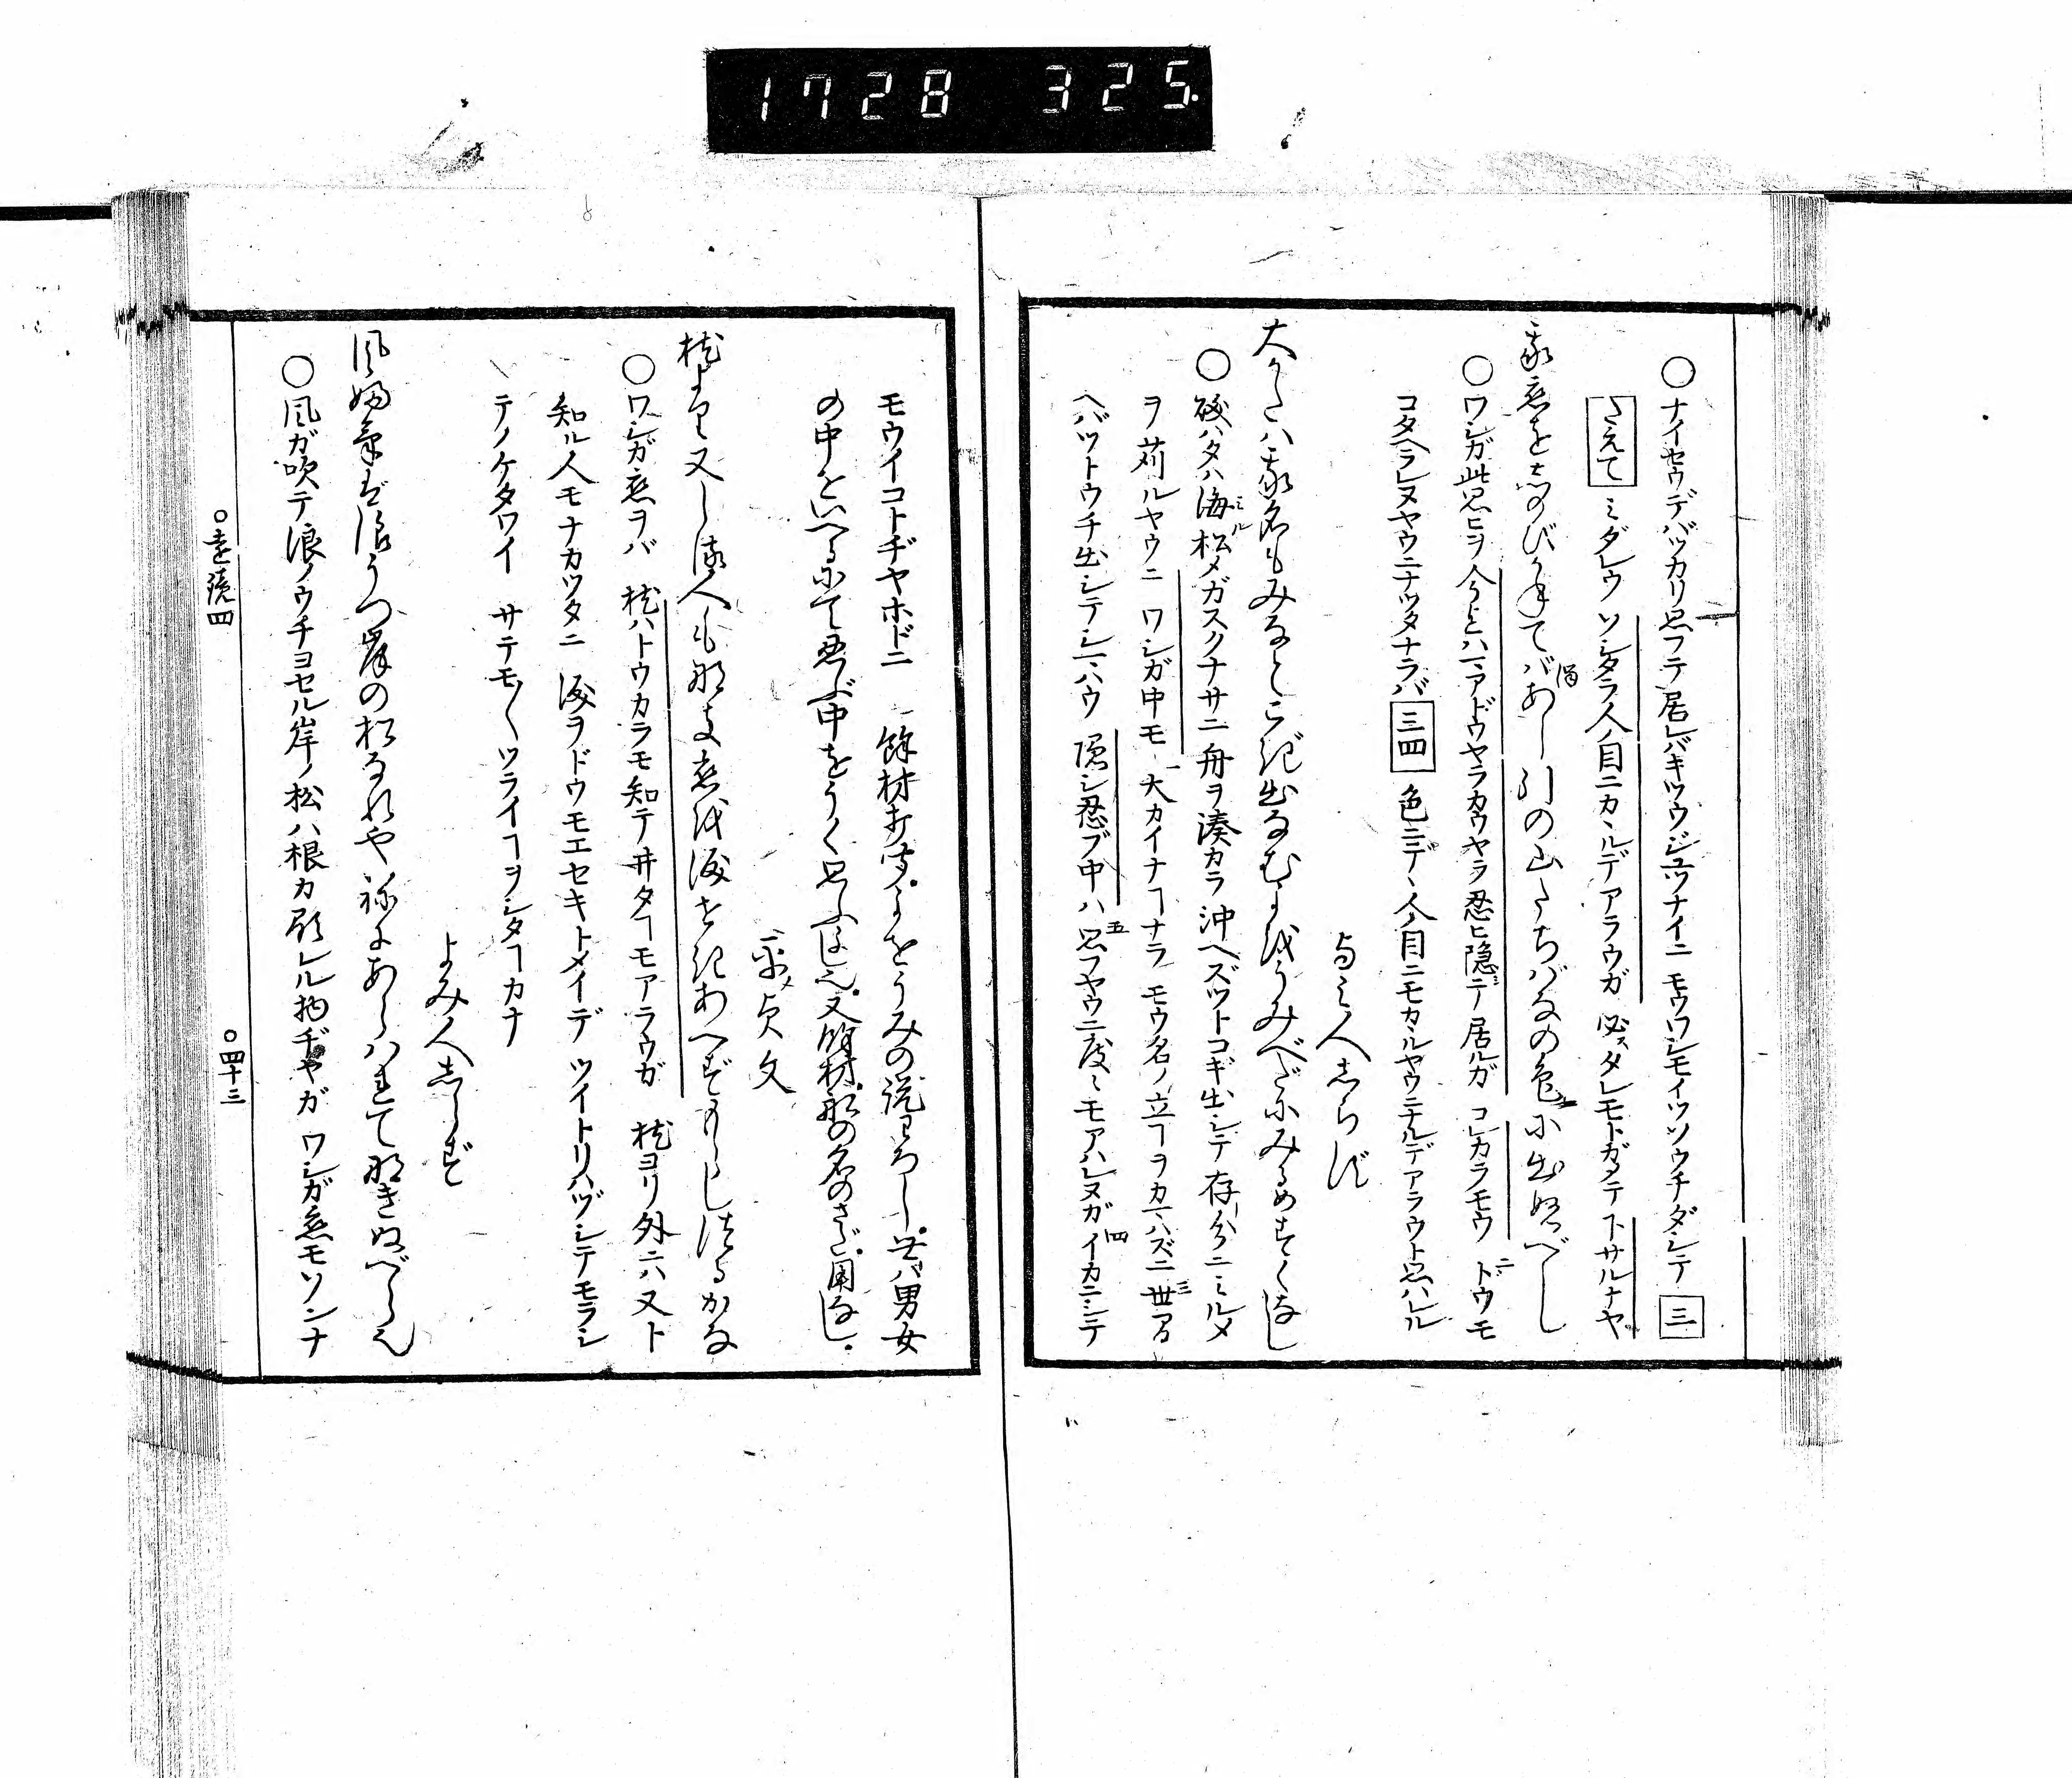 1728 325.
○ナイセウデバッカリ思フテ居レバキツウジユツナイニ モウワシモイツソウチダシテ 三
たえて ミダレウ ソシタラ人ノ目ニカヽルデアラウガ 必スタレモトガメテ下サルナヤ
我恋をしのびかねてバあし引の山たちバなの色に出ぬべし
○ワシガ此思ヒヲ 今マデハマアドウヤラカウヤラ忍ヒ隠シテ居ルガ コレカラモウ ドウモ
コタヘラレヌヤウニナツタナラバ 三四 色ニデヽ人ノ目ニモカヽルヤウニナルデアラウト思ハルル
よみ人しらず
大かたハ我名もみなとこぎ出なむよをうみべたにみるめすくなし
○磯バタハ海松メガスクナサニ舟ヲ湊カラ沖ヘズツトコギ出シテ存分ニミルメ
ヲ苅ルヤウニ ワシガ中モ 大カイナコナラ モウ名ノ立コヲカマハズニ世間
ヘバツトウチ出シテシマハウ 隠シ忍ブ中ハ思フヤウニ度々モアハレヌガイカニシテ
モウイコトヂヤホドニ 餘材打聞よをうみの説わろし。世ハ男女
の中をいへるにて忍ぶ中をうく思ふよし也。又餘材船の名のさだ用なし。
平貞文
枕より又しる人もなき恋を涙せきあへずもらしつるかな
○ワシガ恋ヲバ 枕ハトウカラモ知テ井タコモアラウガ 枕ヨリ外ニハ又ト
知ル人モナカツタニ 涙ヲドウモエセキトメイデ ツイトリハヅシテモラシ
テノケタワイ サテモ〱ツライコヲシタコカナ
よみ人しらず
風ふけば浪うつ岸の松なれやねにあらハれてなきぬべら也
○風ガ吹テ浪ノウチヨセル岸ノ松ハ根カ顕レル物ヂヤガ ワシガ恋モソンナ
○遠鏡四
○四十三